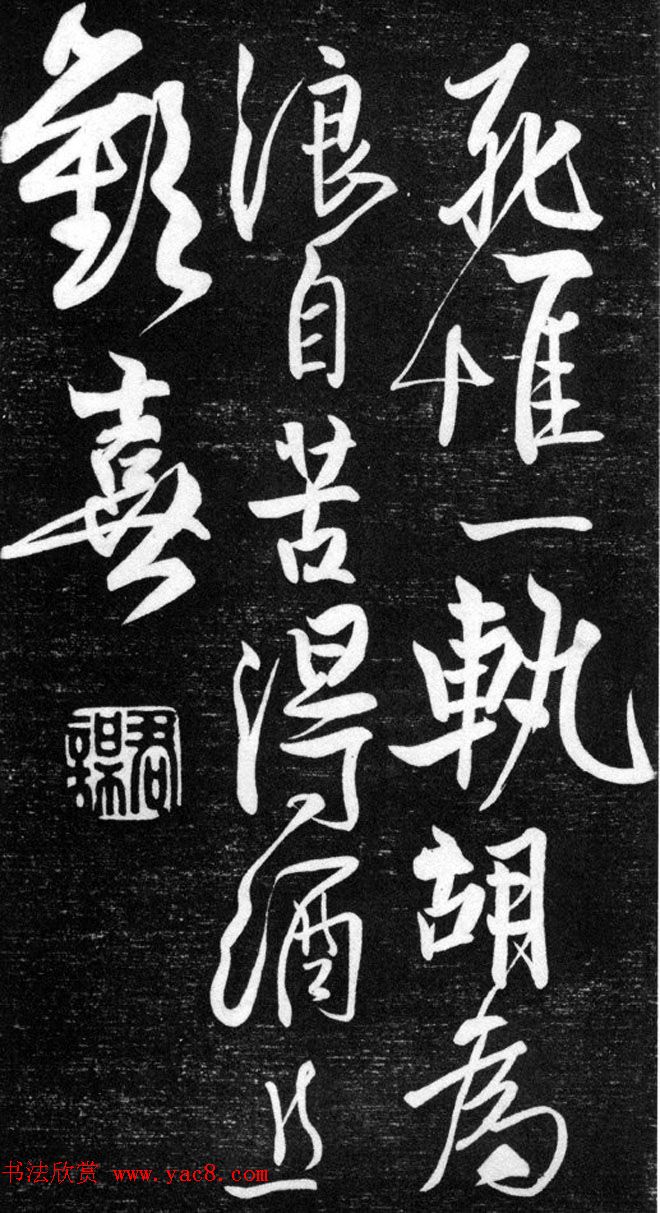 死惟一軌胡為
浪自苦得酒且
歡喜
君謨
书法欣赏 www.yac8.com